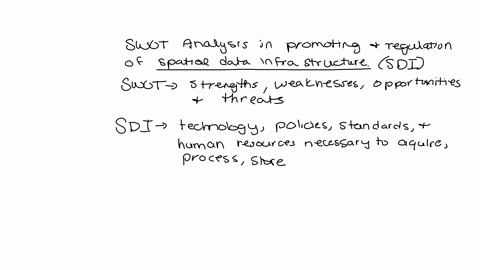 SWOT Analysis in promoting & regulation
of spatial data infra structure (SDI)
SWOT → strengths, weaknesses, opportunities
& threats
SDI → technology, policies, standards, &
human resources necessary to aquire,
process, store